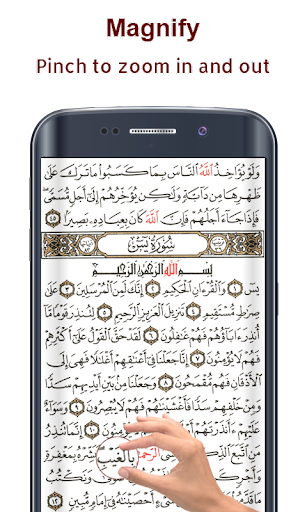 Magnify
Pinch to zoom in and out
وَلَوْ يُؤَاخِذُ ٱللَّهُ ٱلنَّاسَ بِمَا كَسَبُوا۟ مَا تَرَكَ عَلَىٰ
ظَهْرِهَا مِن دَآبَّةٍ وَلَـٰكِن يُؤَخِّرُهُمْ إِلَىٰٓ أَجَلٍ مُّسَمًّى
فَإِذَا جَآءَ أَجَلُهُمْ فَإِنَّ ٱللَّهَ كَانَ بِعِبَادِهِۦ بَصِيرًۢا ٤٥
سُورَةُ يسٓ
بِسْمِ ٱللَّهِ ٱلرَّحْمَـٰنِ ٱلرَّحِيمِ
يسٓ ١ وَٱلْقُرْءَانِ ٱلْحَكِيمِ ٢ إِنَّكَ لَمِنَ ٱلْمُرْسَلِينَ ٣ عَلَىٰ
صِرَٰطٍ مُّسْتَقِيمٍ ٤ تَنزِيلَ ٱلْعَزِيزِ ٱلرَّحِيمِ ٥ لِتُنذِرَ قَوْمًا مَّآ
أُنذِرَ ءَابَآؤُهُمْ فَهُمْ غَـٰفِلُونَ ٦ لَقَدْ حَقَّ ٱلْقَوْلُ عَلَىٰٓ أَكْثَرِهِمْ
فَهُمْ لَا يُؤْمِنُونَ ٧ إِنَّا جَعَلْنَا فِىٓ أَعْنَـٰقِهِمْ أَغْلَـٰلًا فَهِىَ إِلَى
ٱلْأَذْقَانِ فَهُم مُّقْمَحُونَ ٨ وَجَعَلْنَا مِنۢ بَيْنِ أَيْدِيهِمْ سَدًّا
وَمِنْ خَلْفِهِمْ سَدًّا فَأَغْشَيْنَـٰهُمْ فَهُمْ لَا يُبْصِرُونَ ٩ وَسَوَآءٌ
عَلَيْهِمْ ءَأَنذَرْتَهُمْ أَمْ لَمْ تُنذِرْهُمْ لَا يُؤْمِنُونَ ١٠ إِنَّمَا تُنذِرُ
مَنِ ٱتَّبَعَ ٱلذِّكْرَ بِٱلْغَيْبِ فَبَشِّرْهُ بِمَغْفِرَةٍ
وَأَجْرٍ وَنَكْتُبُ
أَحْصَيْنَـٰهُ فِىٓ إِمَامٍ مُّبِينٍ ١٢